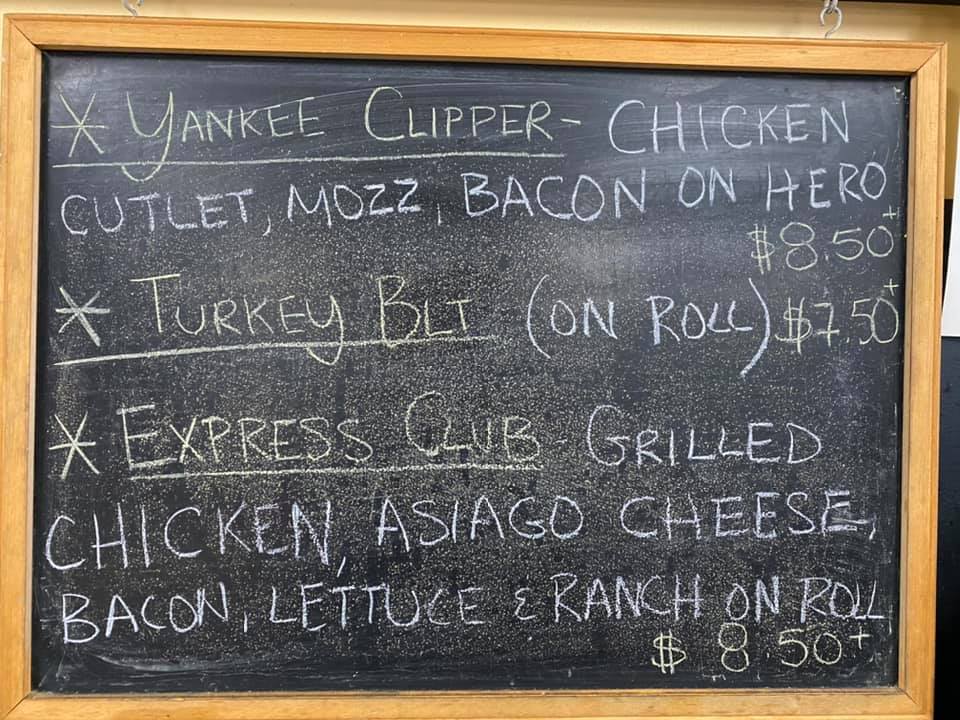 * YANKEE CLIPPER - CHICKEN
CUTLET, MOZZ, BACON ON HERO
$8.50+
* TURKEY BLT (ON ROLL) $7.50+
* EXPRESS CLUB - GRILLED
CHICKEN, ASIAGO CHEESE,
BACON, LETTUCE & RANCH ON ROLL
$8.50+